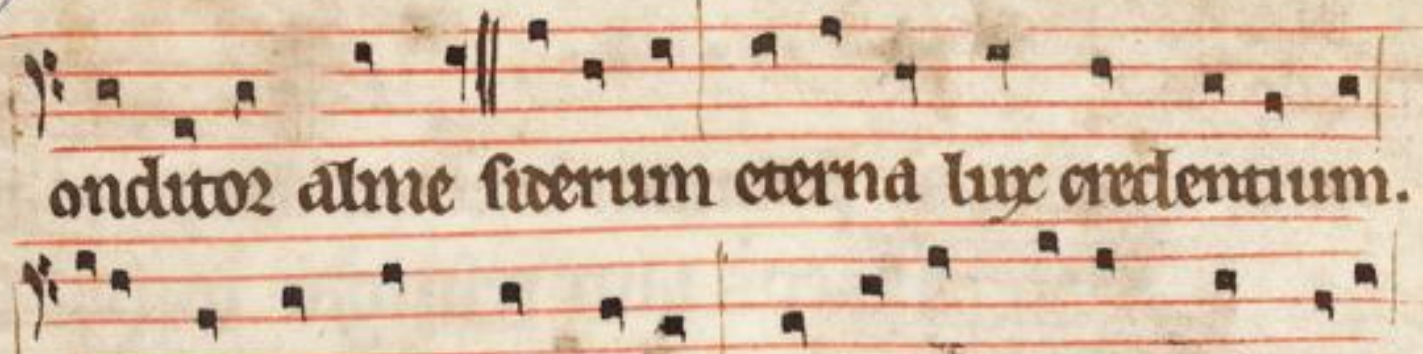 onditor alme siderum eterna lux credentium.